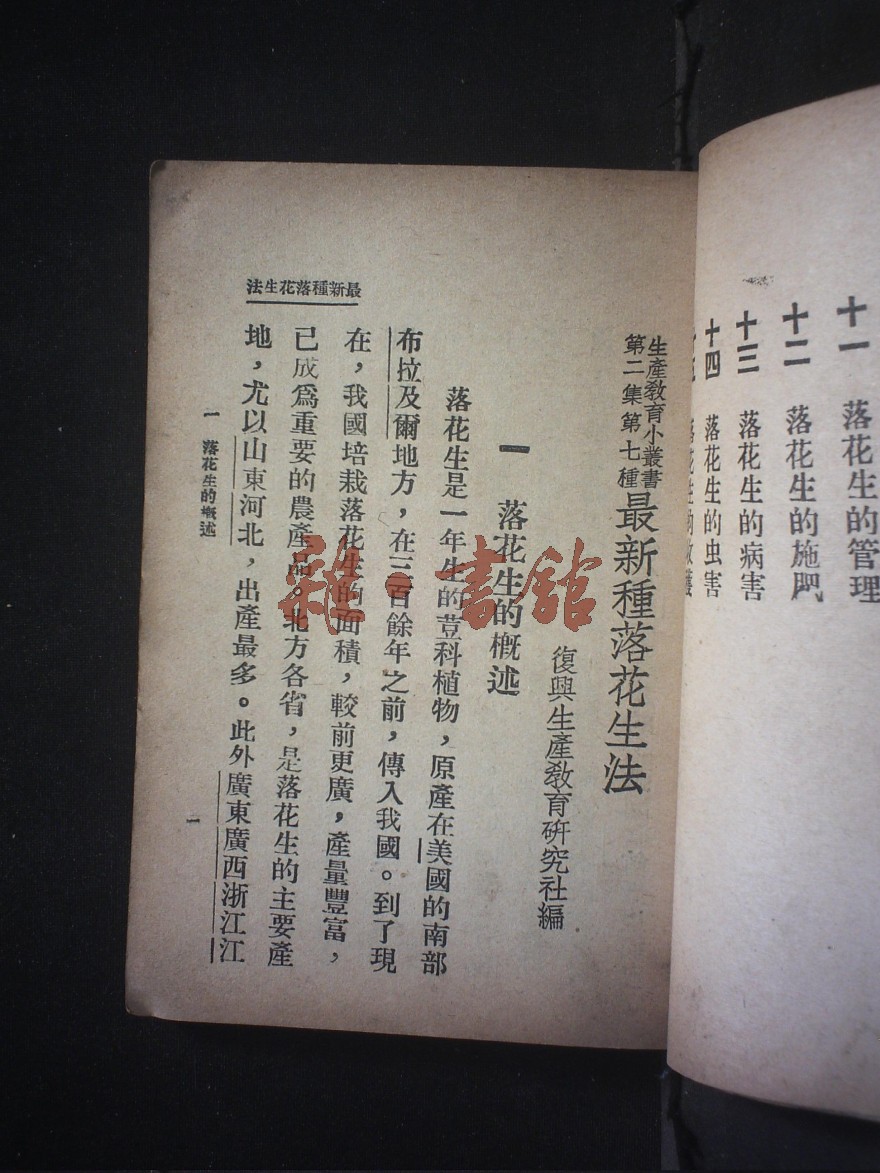 十一 落花生的管理
十二 落花生的施肥
十三 落花生的病害
十四 落花生的虫害
生產教育小叢書
第二集第七種
最新種落花生法
復興生產教育研究社編
一 落花生的概述
落花生是一年生的荳科植物，原產在美國的南部
布拉及爾地方，在三百餘年之前，傳入我國。到了現
在，我國培栽落花生的面積，較前更廣，產量豐富，
已成爲重要的農產品。北方各省，是落花生的主要產
地，尤以山東河北，出產最多。此外廣東廣西浙江江
法生花落種新最
一 落花生的概述
一
雜·書館